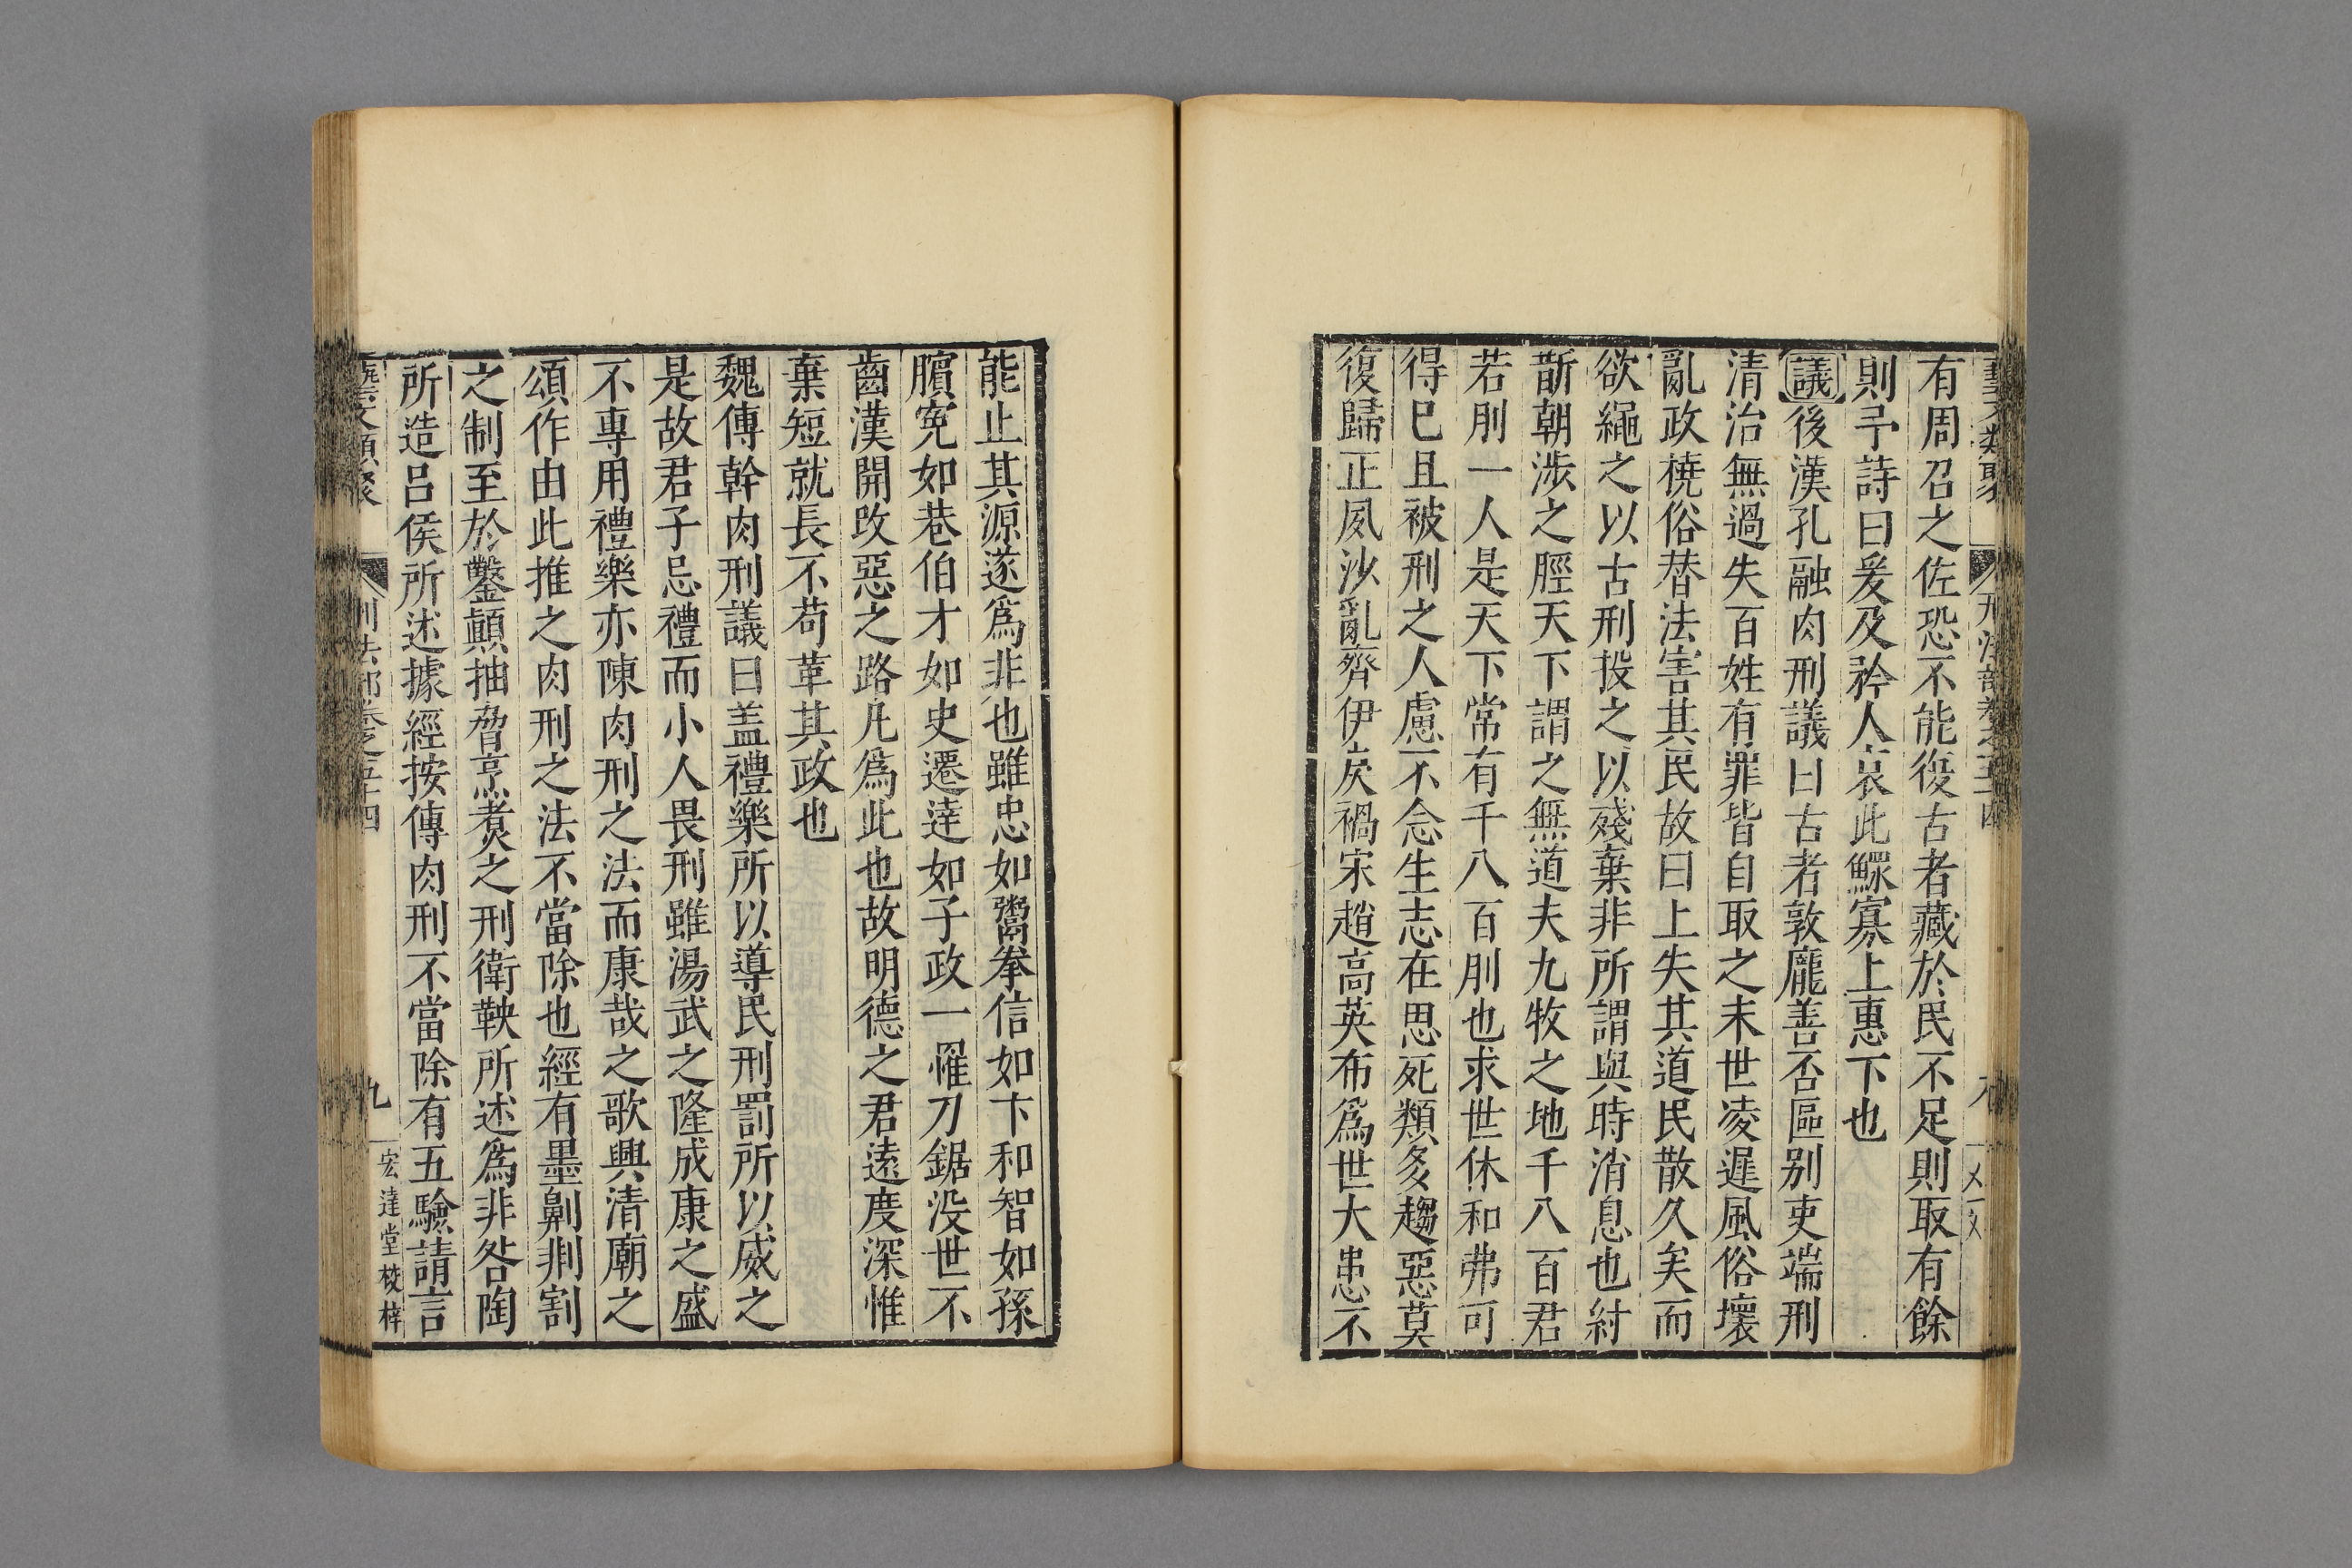 有周召之佐恐不能復古者藏於民不足則取有餘
則予詩曰爰及矜人哀此鰥寡上惠下也
議後漢孔融肉刑議曰古者敦龐善否區别吏端刑
清治無過失百姓有罪皆自取之末世凌遲風俗壞
亂政橈俗替法害其民故曰上失其道民散久矣而
欲繩之以古刑投之以殘棄非所謂與時消息也紂
斮朝涉之脛天下謂之無道夫九牧之地千八百君
若刖一人是天下常有千八百刖也求世休和弗可
得巳且被刑之人慮不念生志在思死類多趨惡莫
復歸正夙沙亂齊伊戾禍宋趙高英布爲世大患不
能止其源遂爲非也雖忠如鬻拳信如卞和智如孫
臏冤如巷伯才如史遷達如子政一罹刀鋸没世不
齒漢開改惡之路凡爲此也故明德之君遠度深惟
棄短就長不苟革其政也
魏傳幹肉刑議曰盖禮樂所以導民刑罰所以威之
是故君子忌禮而小人畏刑雖湯武之隆成康之盛
不專用禮樂亦陳肉刑之法而康哉之歌興清廟之
頌作由此推之肉刑之法不當除也經有墨劓剕割
之制至於鑿顛抽脅烹煮之刑衛鞅所述爲非咎陶
所造呂侯所述據經按傳肉刑不當除有五驗請言
藝文類聚 刑法部卷之五十四 九 宏達堂校梓